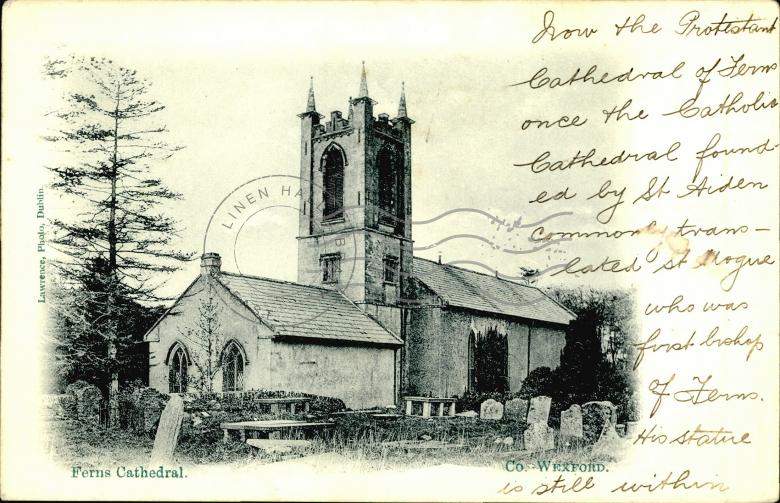 Now the Protestant
Cathedral of Ferns
once the Catholic
Cathedral found-
ed by St Aiden
commonly trans-
lated St Mogue
who was
first bishop
of Ferns.
His statue
is still within
Lawrence, Photo, Dublin.
LINEN HA
B
Ferns Cathedral.
Co. Wexford.